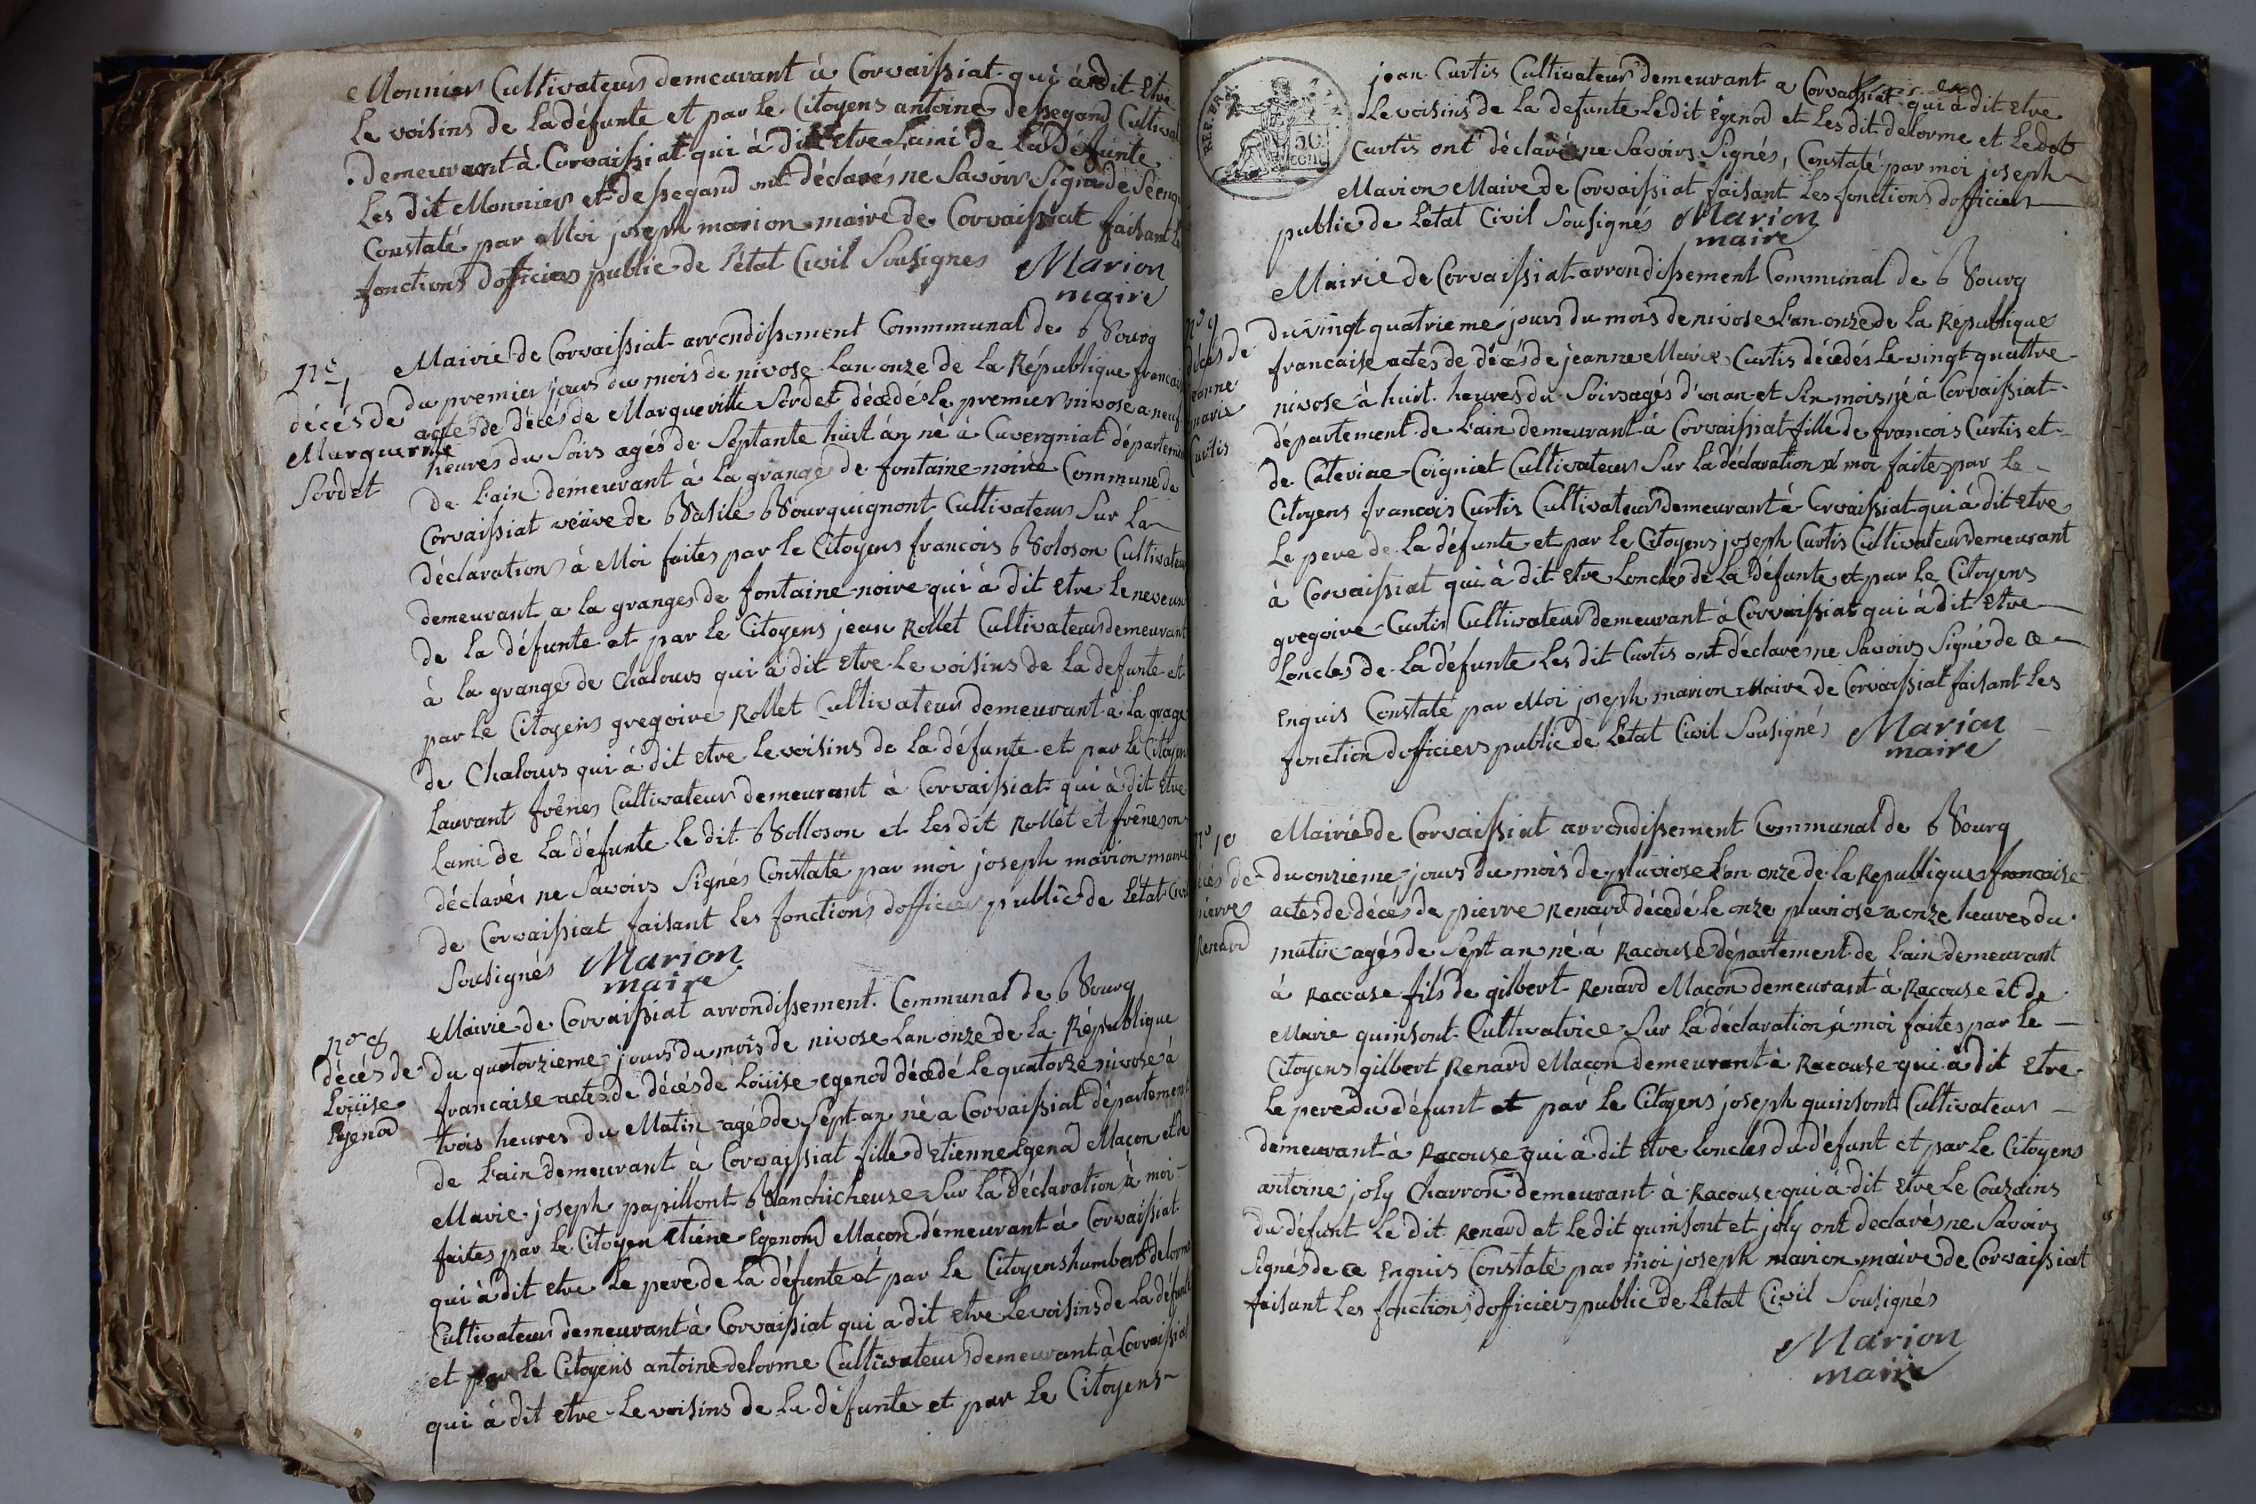 Monnier Cultivateurs demeurant à Corvaissiat qui à dit Etre
le voisins de la défunte et par le Citoyens antoine dessegand Cultivat
demeurant à Corvaissiat qui à dit Etre Lami de La défunte
Les dit Monnier et dessegand ont déclarés ne Savoirs Signé de Se enqu
Constaté par Moi joseph marion maire de Corvaissiat faisant Le
fonctions dofficiers public de l'état Civil Sousignes Marion
maire
Mairie de Corvaissiat arrondissement Communal de Bourg
du premier jours du mois de nivose Lan onze de la République francai
acte de décés de Margueritte Sordet décédés le premier nivose a neuf
heures du Soirs agés de Septante huit an né à Cuvergniat départeme
de Lain demeurant à la grange de fontaine noire Commune de
Corvaissiat veüve de Basile Bourguignont Cultivateurs Sur La
déclarations à Moi faites par le Citoyens francois Boloson Cultivateu
demeurant a la granges de fontaine noire qui à dit Etre Le neveux
de La défunte et par le Citoyens jean Rollet Cultivateurs demeurant
à la grange de Chalours qui à dit Etre Le voisins de La defunte et
par le Citoyens gregoire Rollet Cultivateurs demeurant a la grage
de Chalours qui à dit etre le voisins de la défunte et par le Citoyen
Laurant frênes Cultivateurs demeurant à Corvaissiat qui à dit Etre
Lami de La défunte Le dit Bolloson et Les dit Rollet et frênes on
déclarés ne Savoirs Signés Constaté par moi joseph marion maire
de Corvaissiat faisant les fonctions dofficiers public de L'état Civil
Sousignés Marion
maire
n° 7
décés de
Marguerite
Sordet
Mairie de Corvaissiat arrondissement Communal de Bourg
du quatorzieme jours du mois de nivose Lan onze de la République
francaise acte de décés de Loüise Egenod décédé le quatorze nivose à
trois heures du Matin agés de Sept an né a Corvaissiat département
de Lain demeurant à Corvaissiat fille d'Etienne Egenod Maçon et de
Marie joseph papillont Blanchicheuse Sur la déclaration à moi
faites par le Citoyen Etiene Egenod Macon démeurant à Corvaissiat
qui à dit etre le pere de la défunte et par le Citoyens humbert delorme
Cultivateurs demeurant à Corvaissiat qui a dit etre Le voisins de la défunte
et par le Citoyens antoine delorme Cultivateurs demeurant à Corvaissiat
qui à dit etre Le voisins de La défunte et par Le Citoyens
nro 8
décés de
Loüise
Egenod
REP. FRA.
50
cent
jean Curtis Cultivateurs demeurant a Corvaissiat qui à dit Etre
Le voisins de La defunte Ledit Egenod et Les dit delorme et Ledit
Curtis ont déclaré ne Savoirs Signés, Constaté par moi joseph
Marion Maire de Corvaissiat faisant Les fonctions dofficiers
public de Létat Civil Sousignés Marion
maire
Mairie de Corvaissiat arrondissement Communal de Bourg
du vingt quatrieme jours du mois de nivose Lan onze de La République
francaise actes de décés de jeanne Marie Curtis décédés Le vingt quattre
nivose à huit heures du Soirs agés d'un an et Six mois né à Corvaissiat
département de Lain demeurant à Corvaissiat fille de francois Curtis et
de Caterine Coigniet Cultivateurs Sur La déclaration à moi faites par Le
Citoyens francois Curtis Cultivateurs demeurant à Corvaissiat qui à dit Etre
Le pere de La défunte et par le Citoyens joseph Curtis Cultivateur demeurant
à Corvaissiat qui à dit Etre Loncles de La défunte et par Le Citoyens
gregoire Curtis Cultivateurs demeurant à Corvaissiat qui à dit Etre
Loncles de La défunte Les dit Curtis ont déclarés ne Savoirs Signé de ce
Enquis Constaté par Moi joseph marion Maire de Corvaissiat faisant Les
fonction dofficiers public de Létat Civil Sousignés Marion
maire
n° 9
décés de
jeanne
marie
Curtis
Mairie de Corvaissiat arrondissement Communal de Bourg
du onzieme jours du mois de pluviose Lan onze de la Republique francaise
actes de décés de pierre Renard décédé le onze pluviose a onze heures du
matin agés de Sept an né à Racouse département de Lain demeurant
à Racouse fils de gilbert Renard Maçon demeurant à Racouse et de
Marie quinsont Cultivatrice Sur La déclaration à moi faites par le
Citoyens gilbert Renard Maçon demeurant à Racouse qui à dit Etre
Le pere du défunt et par Le Citoyens joseph quinsont Cultivateurs
demeurant à Racouse qui à dit Etre Loncles du défunt et par Le Citoyens
antoine joly Charron demeurant à Racouse qui à dit Etre Le Couzains
du défunt Le dit Renard et Le dit quinsont et joly ont declarés ne Savoirs
Signés de ce Enquis Constaté par moi joseph marion maire de Corvaissiat
faisant Les fonctions dofficiers public de Létat Civil Sousignés
Marion
maire
n° 10
décés de
pierre
Renard